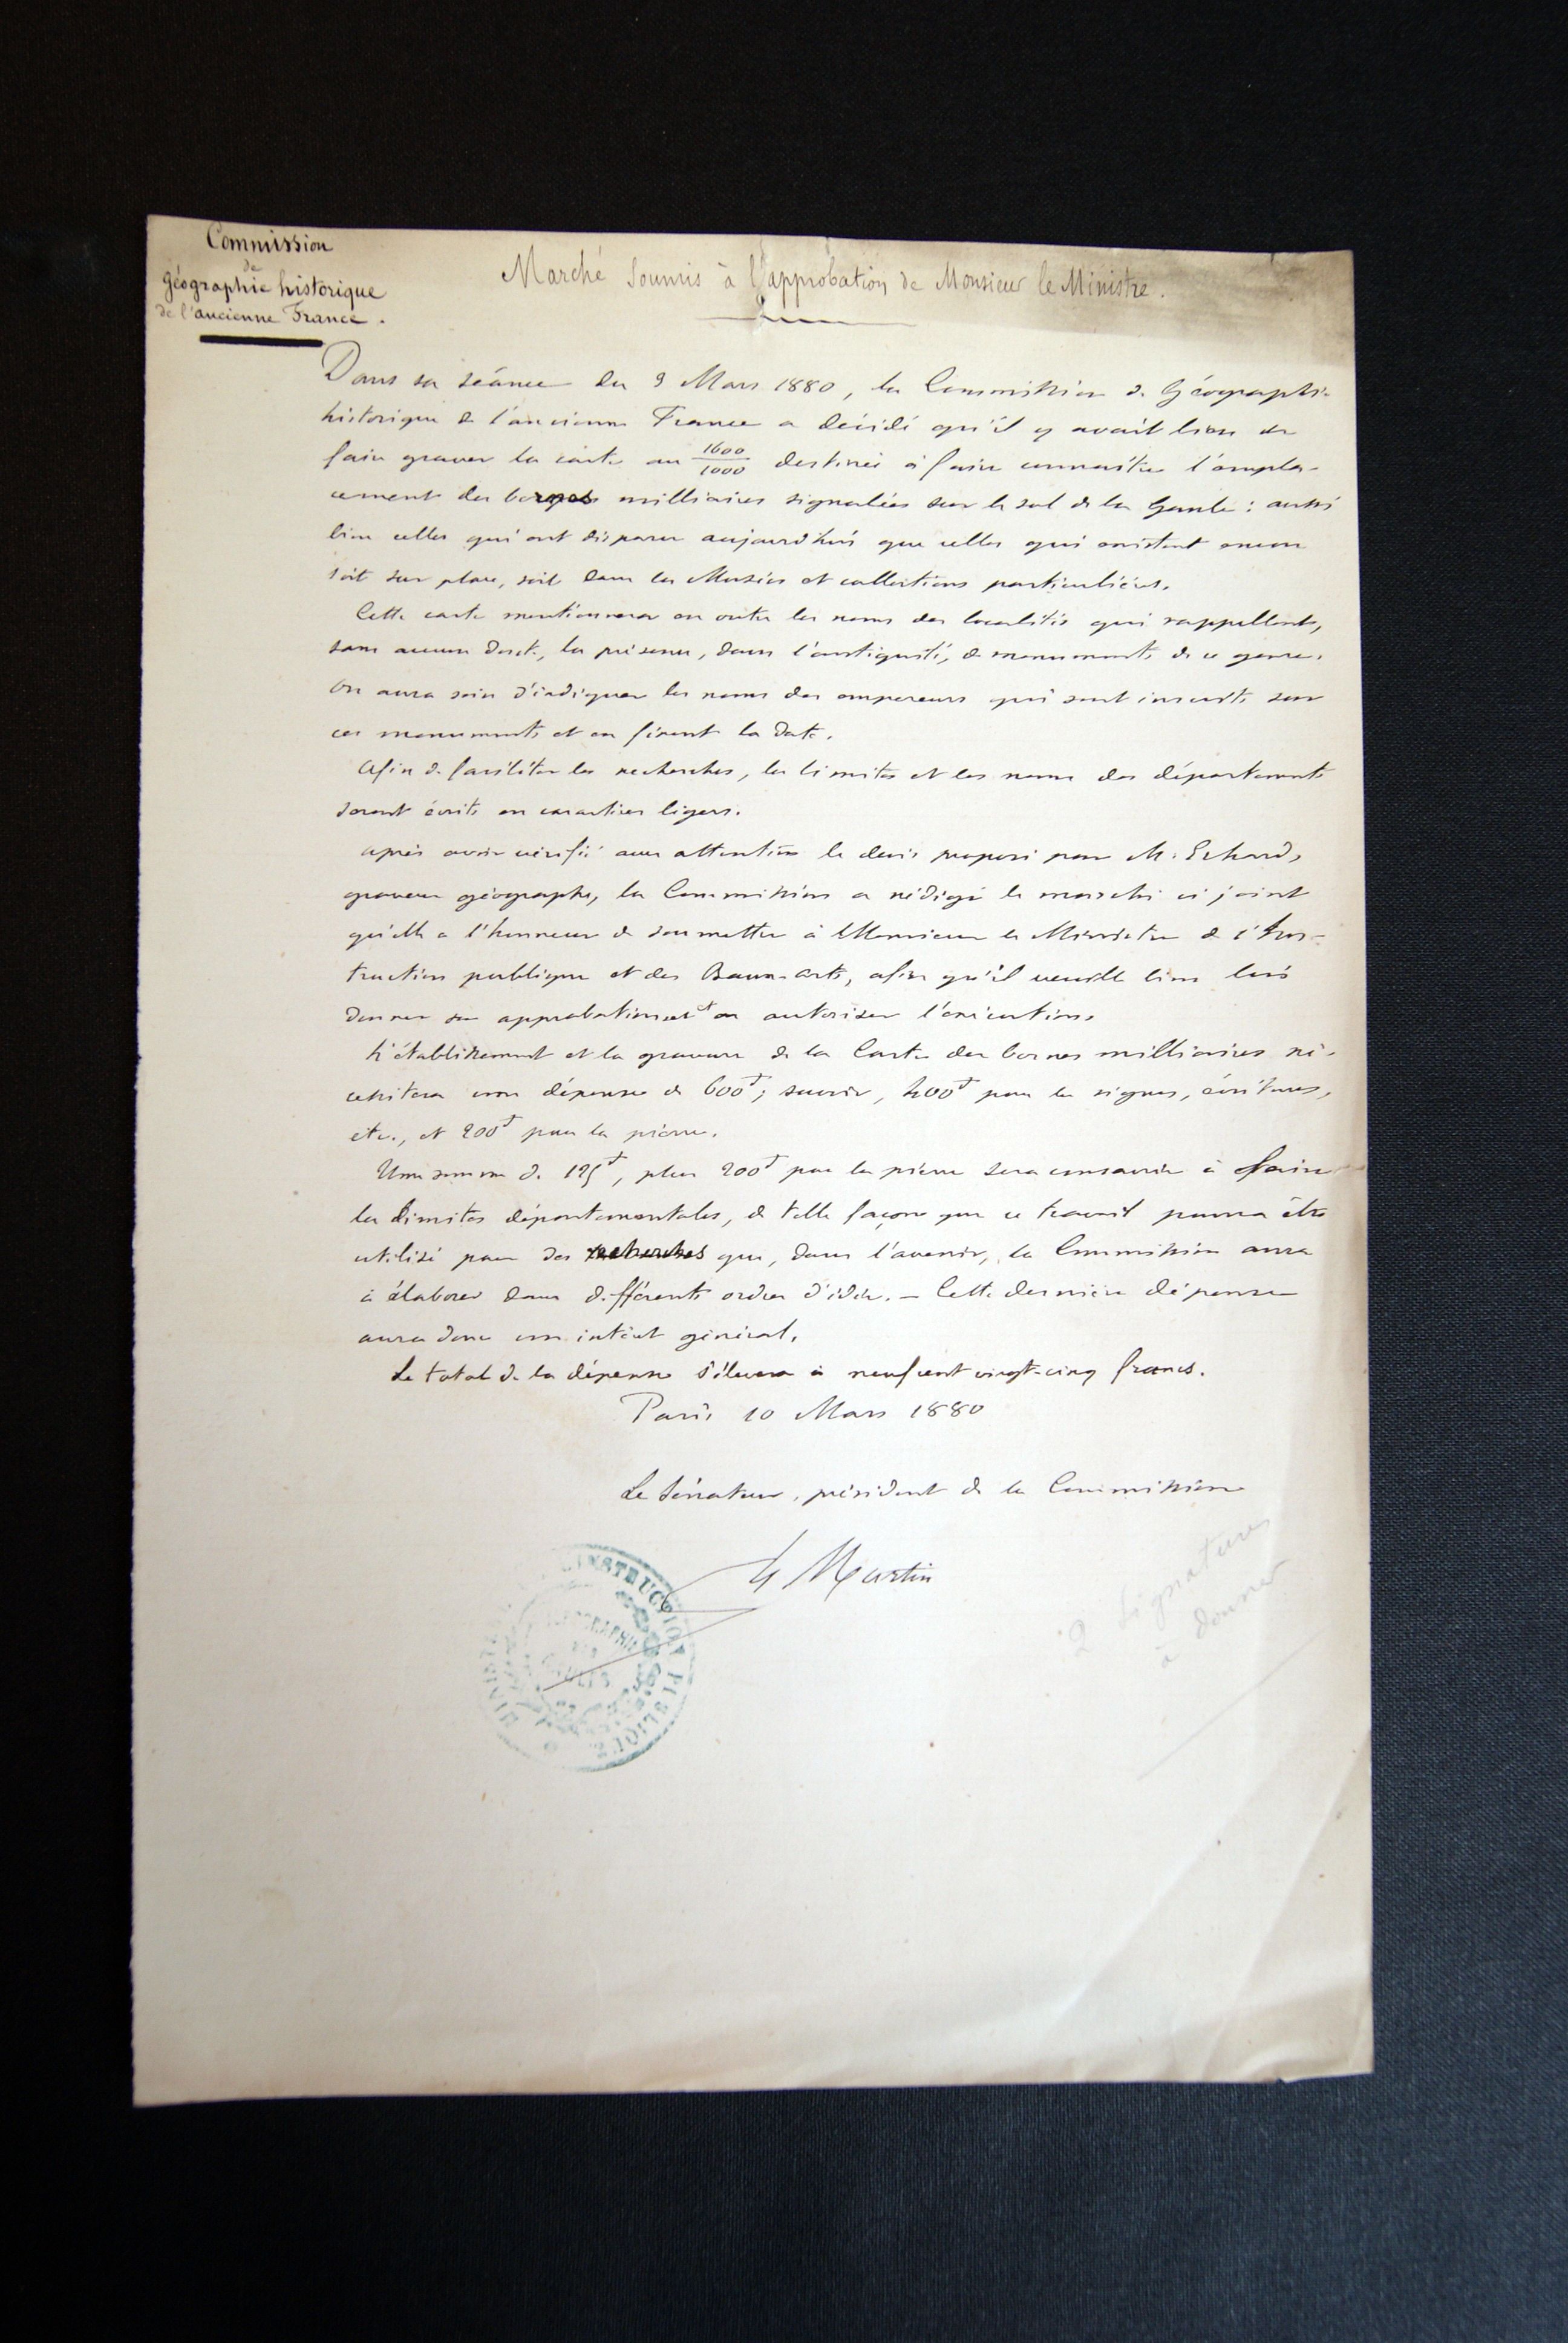 Commission
de
géographie historique
de l'ancienne France.
Marché soumis à l'approbation de Monsieur le Ministre.
Dans sa séance du 9 Mars 1880, la Commission de Géographie
historique de l'ancienne France a décidé qu'il y avait lieu de
faire graver la carte au 1600/1000 destinée à faire connaître l'empla-
cement des bornes milliaires signalées sur le sol de la Gaule : aussi
bien celles qui ont disparu aujourd'hui que celles qui existent encore
soit sur place, soit dans les Musées et collections particulières.
Cette carte mentionnera en outre les noms des localités qui rappellent,
sans aucun doute, la présence, dans l'antiquité, de monuments de ce genre.
On aura soin d'indiquer les noms des empereurs qui sont inscrits sur
ces monuments et en fixent la date.
Afin de faciliter les recherches, les limites et les noms des départements
seront écrits en caractères légers.
Après avoir vérifié avec attention le devis proposé par M. Erhard,
graveur géographe, la Commission a rédigé le marché ci joint
qu'elle a l'honneur de soumettre à Monsieur le Ministre de l'Ins-
truction publique et des Beaux-arts, afin qu'il veuille bien lui
donner son approbation et en autoriser l'exécution.
L'établissement et la gravure de la Carte des bornes milliaires né-
cessitera une dépense de 600f; savoir, 400f pour les signes, écritures,
etc., et 200f pour la pierre.
Une somme de 125f, plus 200f pour la pierre sera consacrée à faire
les limites départementales, de telle façon que ce travail pourra être
utilisé pour des recherches que, dans l'avenir, la Commission aura
à élaborer dans différents ordres d'idées. - Cette dernière dépense
aura donc un intérêt général.
Le total de la dépense s'élèvera à neuf cent vingt-cinq francs.
Paris 10 Mars 1880
Le Sénateur, président de la Commission
H Martin
2 signatures
à donner
INSTRUCTION PUBLIQUE